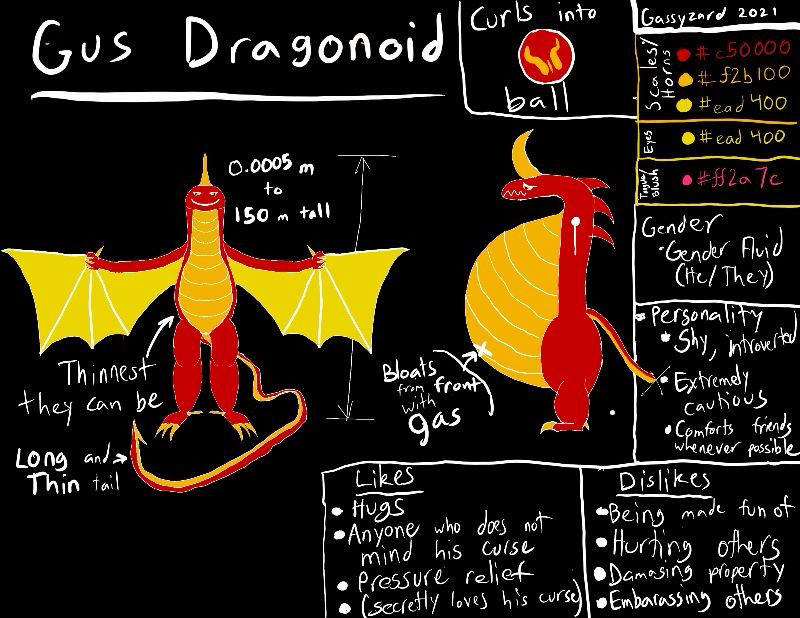 Gus Dragonoid
Curls into
ball
Gassyzard 2021
Scales/
Horns
#c50000
#f2b100
#ead400
Eyes
#ead 400
Tongue/
blush
#ff2a7c
0.0005 m
to
150 m tall
Thinnest
they can be
Long and
Thin tail
Bloats
from front
with
gas
Gender
Gender Fluid
(He/They)
Personality
Shy, introverted
Extremely
cautious
Comforts friends
whenever possible
Likes
Hugs
Anyone who does not
mind his curse
Pressure relief
(secretly loves his curse)
Dislikes
Being made fun of
Hurting others
Damasing property
Embarassing others